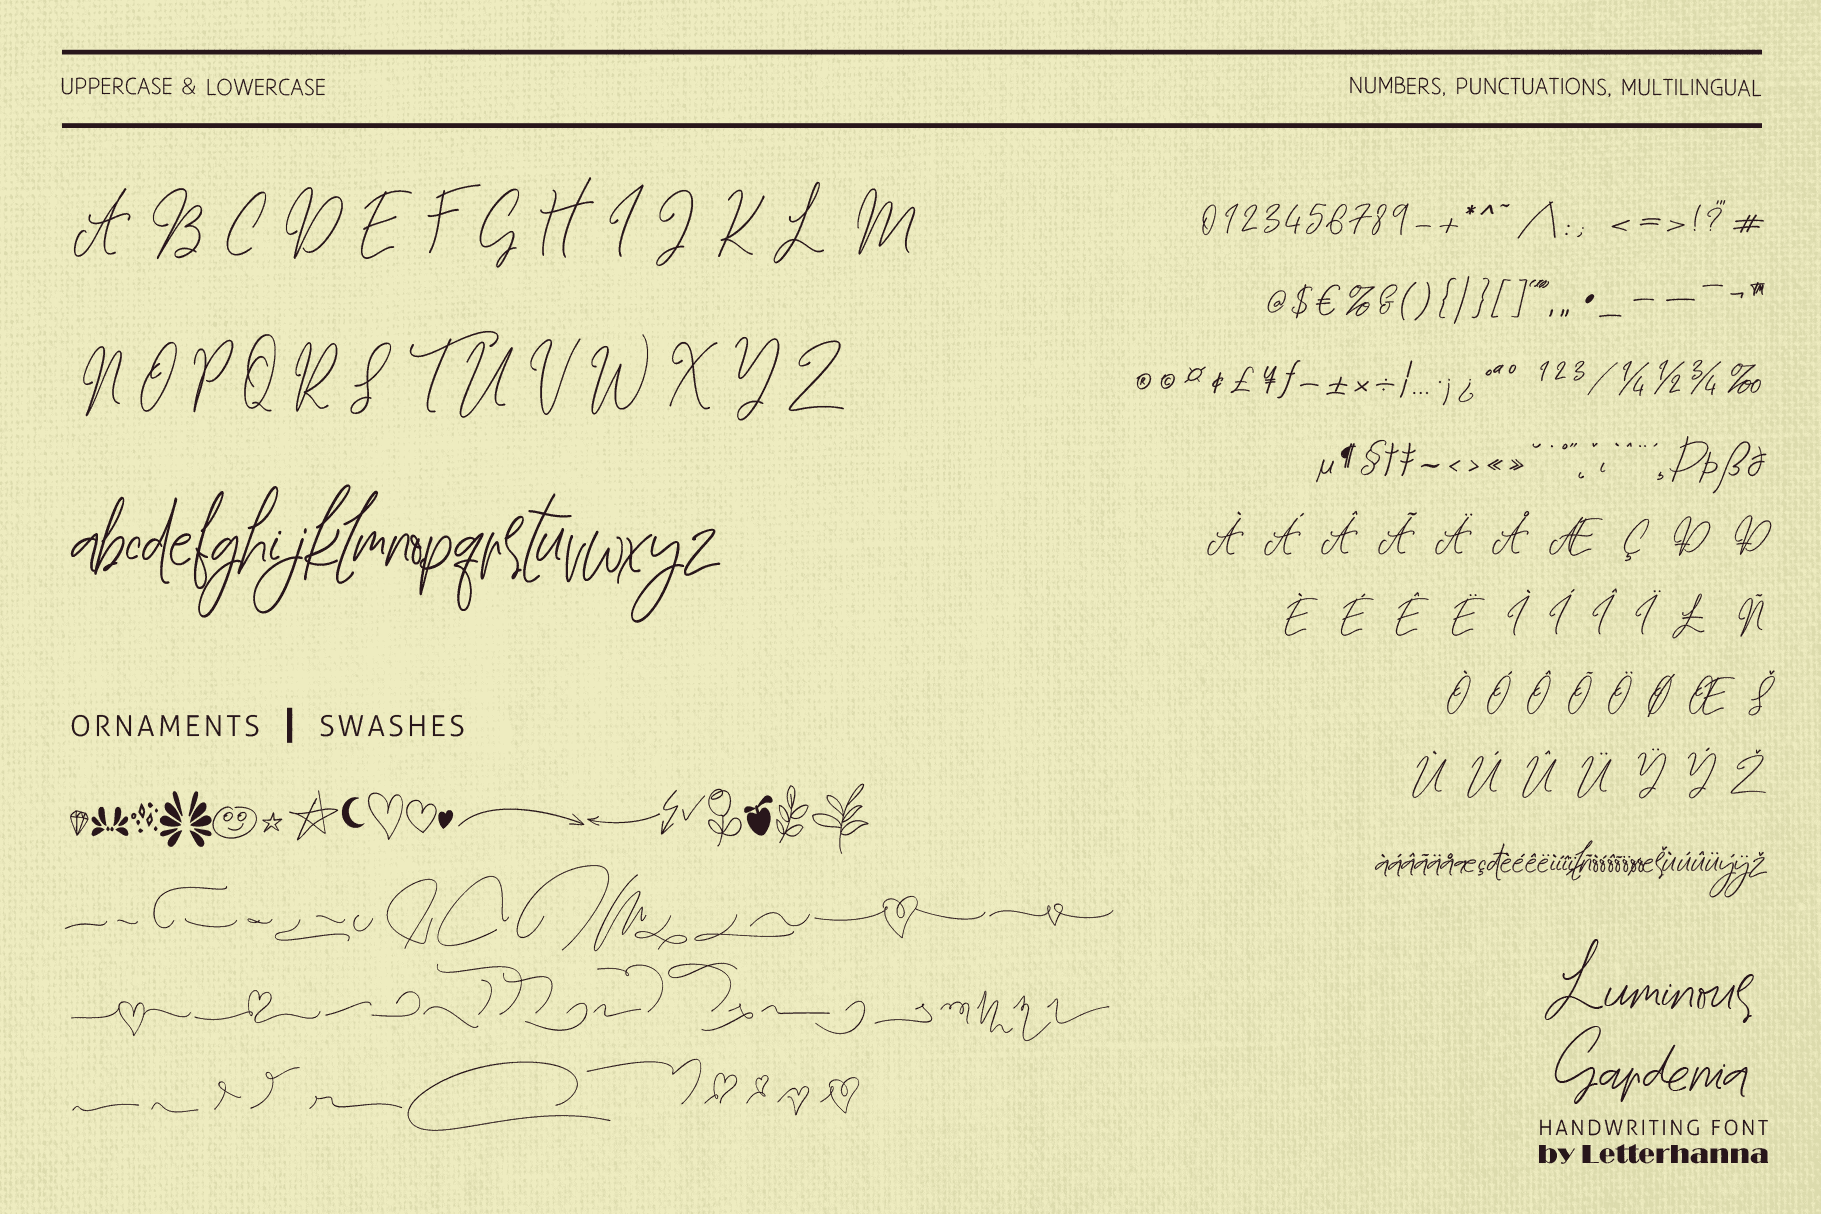 UPPERCASE & LOWERCASE
NUMBERS, PUNCTUATIONS, MULTILINGUAL
A B C D E F G H I J K L M
N O P Q R S T U V W X Y Z
abcdefghijklmnopqrstuvwxyz
ORNAMENTS | SWASHES
0123456789-+*^~/\:; <=>!?"'#
@$€%&(){|}[]‘’“”‚„•_–—¯¬™
®©¤¢£¥ƒ–±×÷¦…·¡¿°ªº 123/¼½¾‰
µ¶§†‡~<>«»˘˙°˝˛ˇ˛`ˆ¨´¸Þþßð
À Á Â Ã Ä Å Æ Ç Ð Đ
È É Ê Ë Ì Í Î Ï Ł Ñ
Ò Ó Ô Õ Ö Ø Œ Š
Ù Ú Û Ü Ÿ Ý Ž
àáâãäåæçđèéêëìíîïłñòóôõöøœšùúûüýÿž
Luminous
Gardenia
HANDWRITING FONT
by Letterhanna